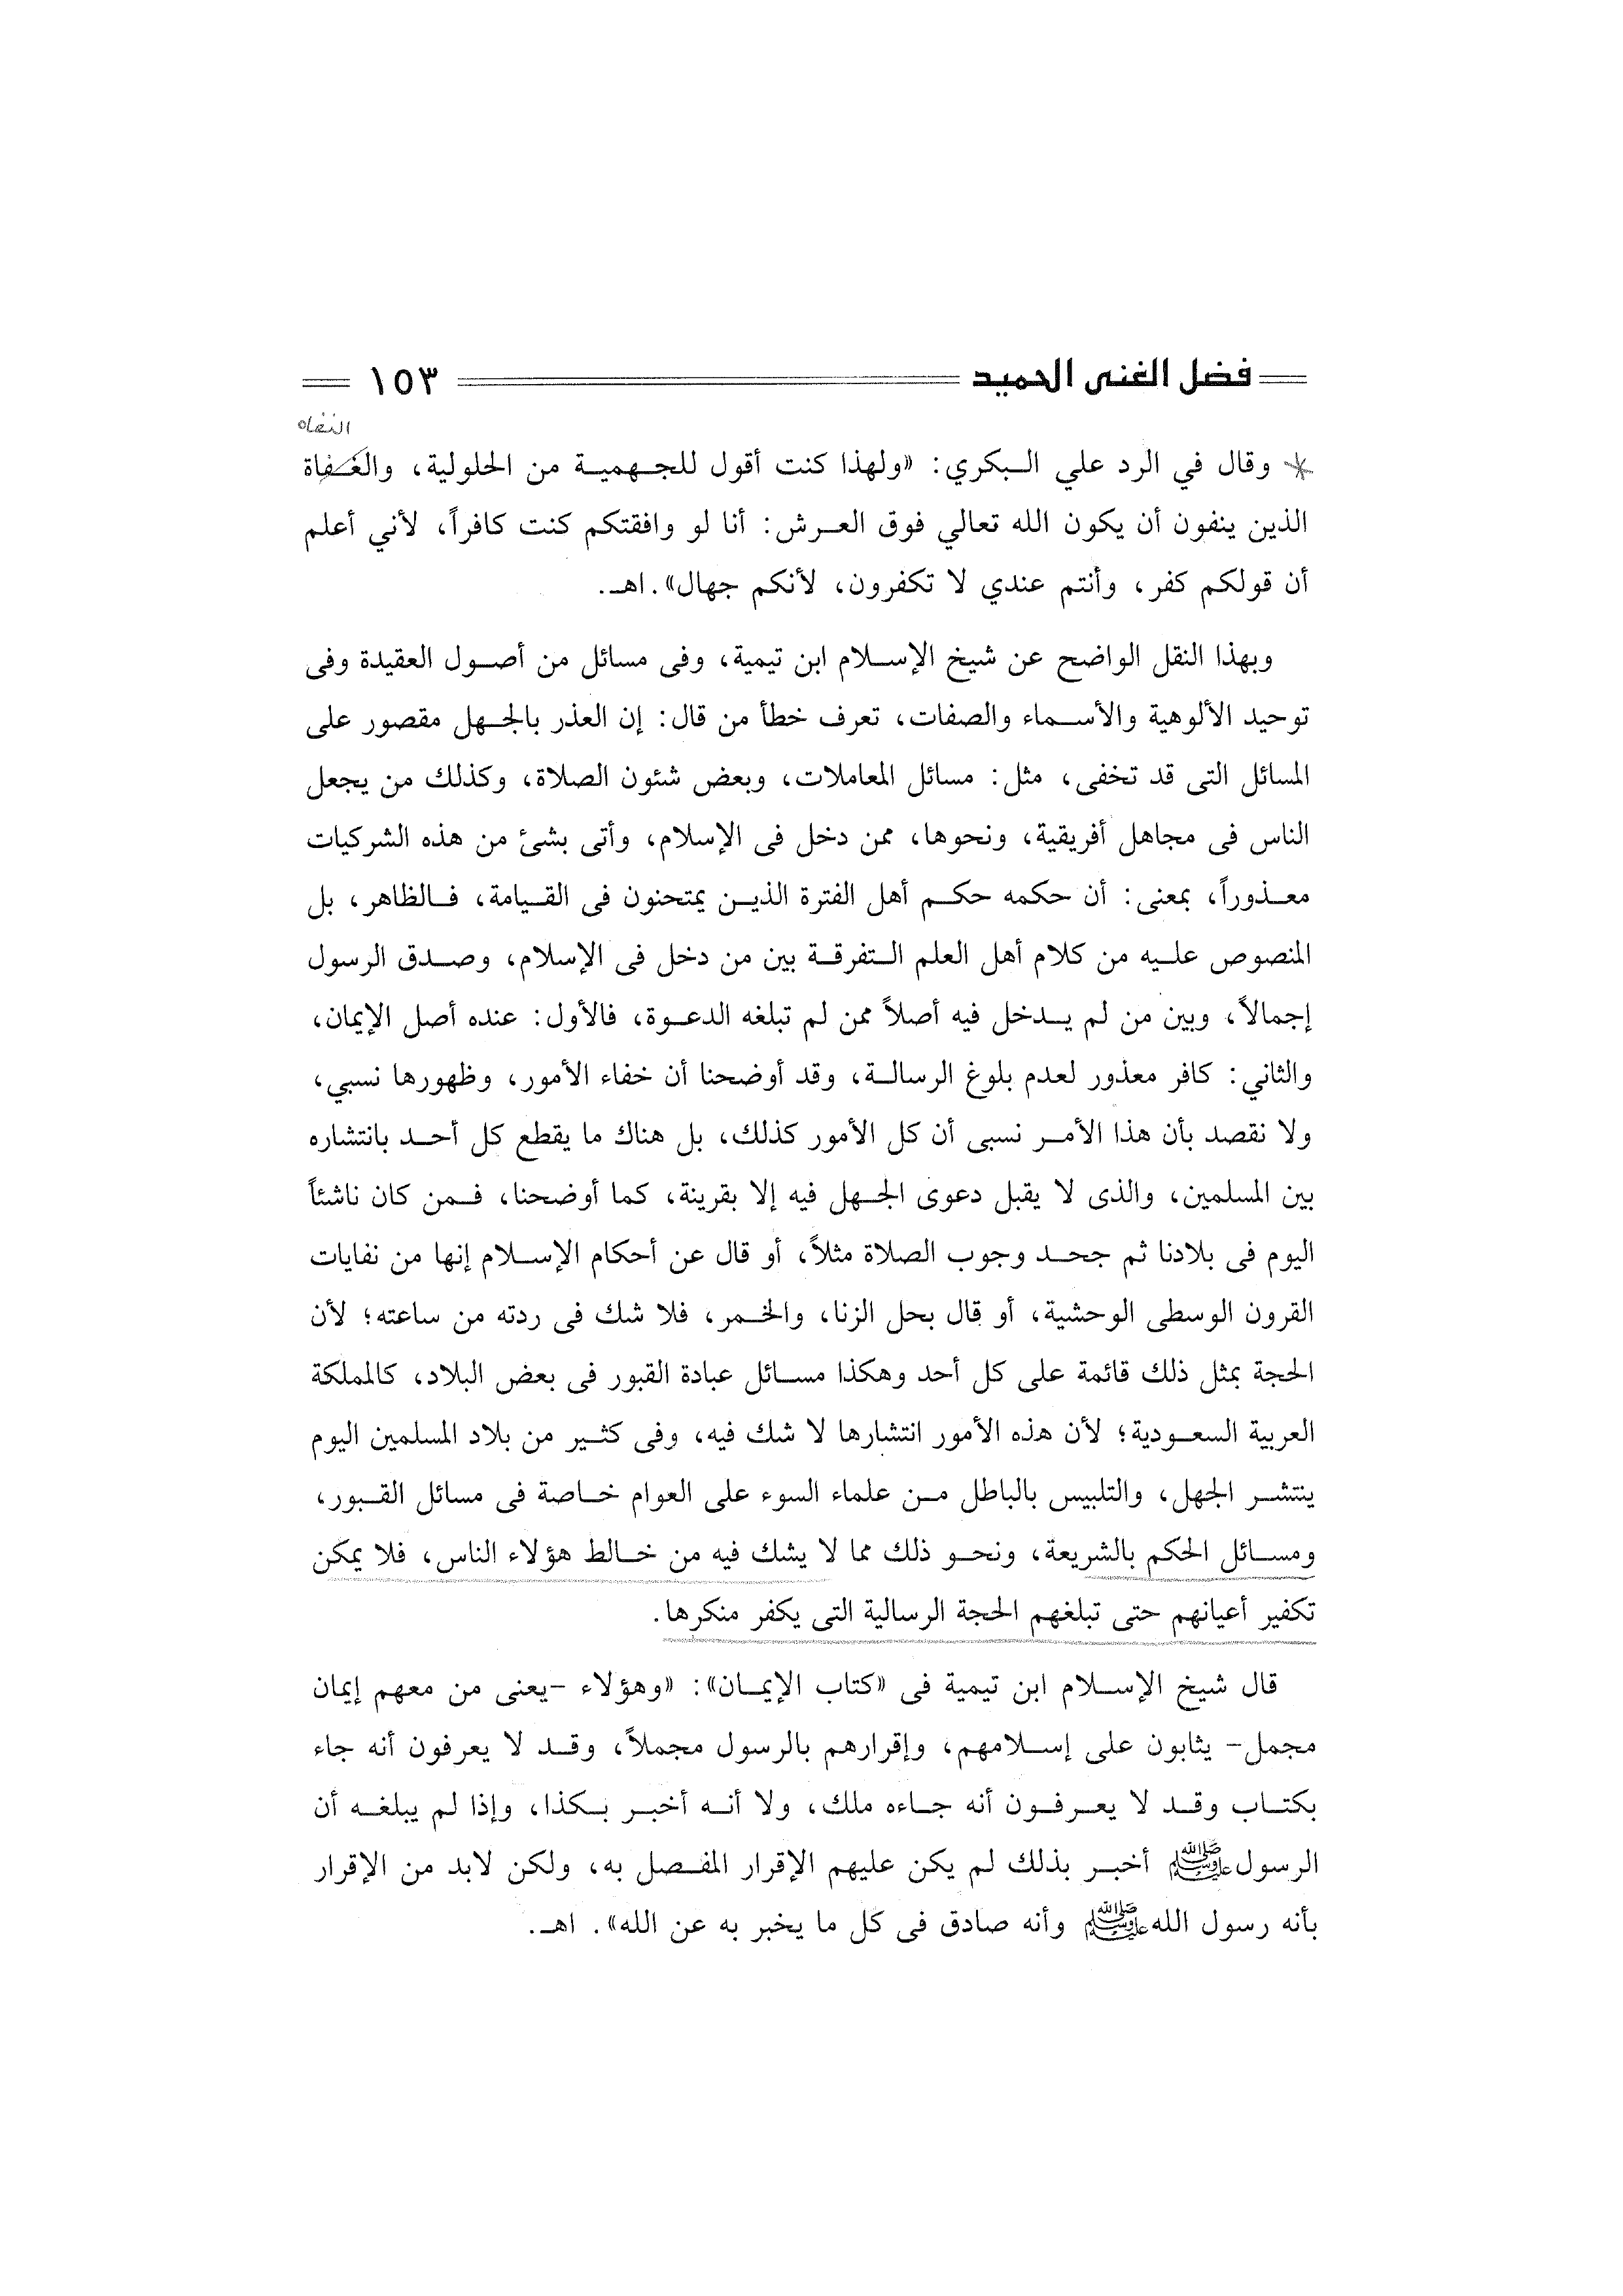 فضل الغنى الحميد ١٥٣
النفاه
* وقال في الرد علي البكري: «ولهذا كنت أقول للجهمية من الحلولية، والغفاة
الذين ينفون أن يكون الله تعالي فوق العرش: أنا لو وافقتكم كنت كافراً، لأني أعلم
أن قولكم كفر، وأنتم عندي لا تكفرون، لأنكم جهال». اهـ.
وبهذا النقل الواضح عن شيخ الإسلام ابن تيمية، وفى مسائل من أصول العقيدة وفى
توحيد الألوهية والأسماء والصفات، تعرف خطأ من قال: إن العذر بالجهل مقصور على
المسائل التى قد تخفى، مثل: مسائل المعاملات، وبعض شئون الصلاة، وكذلك من يجعل
الناس فى مجاهل أفريقية، ونحوها، ممن دخل فى الإسلام، وأتى بشئ من هذه الشركيات
معذوراً، بمعنى: أن حكمه حكم أهل الفترة الذين يمتحنون فى القيامة، فالظاهر، بل
المنصوص عليه من كلام أهل العلم التفرقة بين من دخل فى الإسلام، وصدق الرسول
إجمالاً، وبين من لم يدخل فيه أصلاً ممن لم تبلغه الدعوة، فالأول: عنده أصل الإيمان،
والثاني: كافر معذور لعدم بلوغ الرسالة، وقد أوضحنا أن خفاء الأمور، وظهورها نسبي،
ولا نقصد بأن هذا الأمر نسبى أن كل الأمور كذلك، بل هناك ما يقطع كل أحد بانتشاره
بين المسلمين، والذى لا يقبل دعوى الجهل فيه إلا بقرينة، كما أوضحنا، فمن كان ناشئاً
اليوم فى بلادنا ثم جحد وجوب الصلاة مثلاً، أو قال عن أحكام الإسلام إنها من نفايات
القرون الوسطى الوحشية، أو قال بحل الزنا، والخمر، فلا شك فى ردته من ساعته؛ لأن
الحجة بمثل ذلك قائمة على كل أحد وهكذا مسائل عبادة القبور فى بعض البلاد، كالمملكة
العربية السعودية؛ لأن هذه الأمور انتشارها لا شك فيه، وفى كثير من بلاد المسلمين اليوم
ينتشر الجهل، والتلبيس بالباطل من علماء السوء على العوام خاصة فى مسائل القبور،
ومسائل الحكم بالشريعة، ونحو ذلك مما لا يشك فيه من خالط هؤلاء الناس، فلا يمكن
تكفير أعيانهم حتى تبلغهم الحجة الرسالية التى يكفر منكرها.
قال شيخ الإسلام ابن تيمية فى «كتاب الإيمان»: «وهؤلاء -يعنى من معهم إيمان
مجمل- يثابون على إسلامهم، وإقرارهم بالرسول مجملاً، وقد لا يعرفون أنه جاء
بكتاب وقد لا يعرفون أنه جاءه ملك، ولا أنه أخبر بكذا، وإذا لم يبلغه أن
الرسول ﷺ أخبر بذلك لم يكن عليهم الإقرار المفصل به، ولكن لابد من الإقرار
بأنه رسول الله ﷺ وأنه صادق فى كل ما يخبر به عن الله». اهـ.